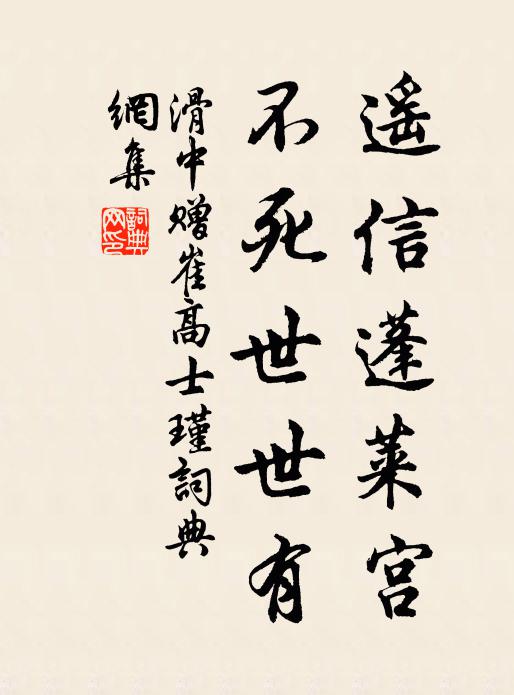 遥信蓬莱宫
不死世世有
滑中赠崔高士瑾詞典
網集
詞典网印